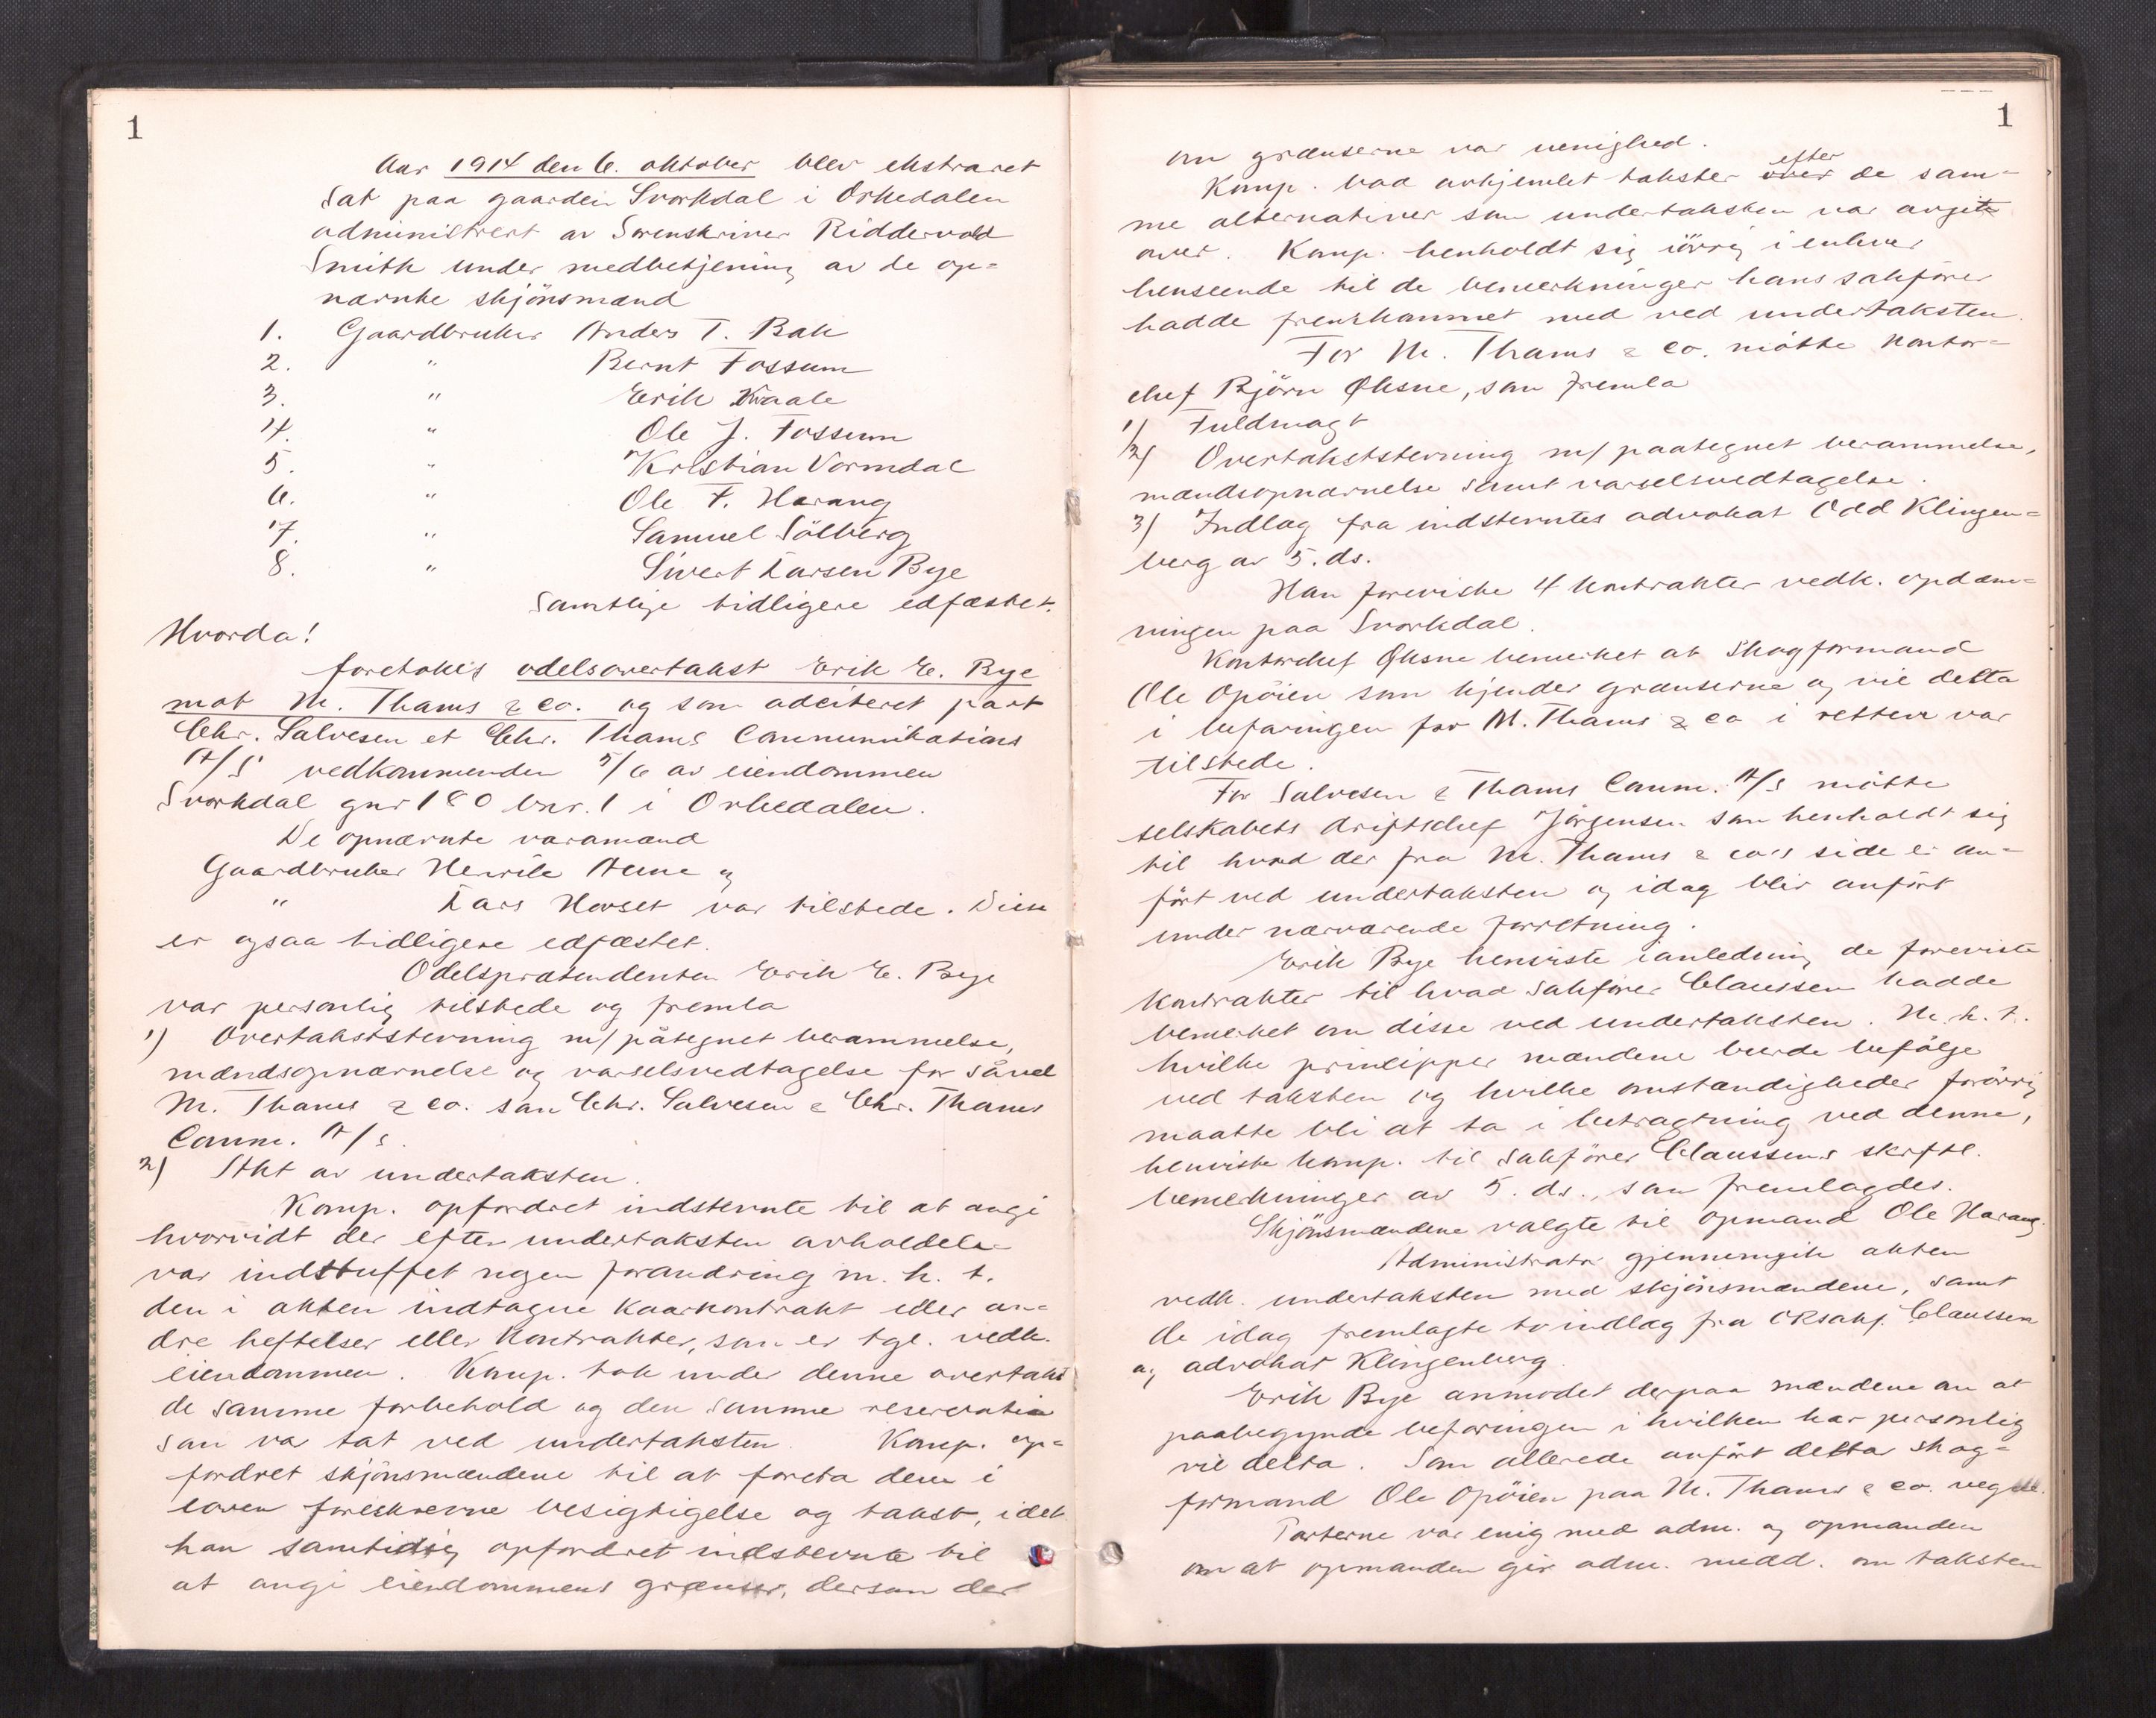 1
Aar 1914 den 6. oktober blev ekstraret
sat paa gaarden Svorkdal i Orkedalen
administrert av Sorenskriver Riddervold
Smith under medbetjening av de op-
nævnte skjönsmænd
1. Gaardbruker Anders T. Bak
2. " Bernt Fossum
3. " Erik Kvaale
4. " Ole J. Fossum
5. " Kristian Vormdal
6. " Ole F. Harang
7. " Samuel Sölberg
8. " Sivert Larsen Bye
Samtlige tidligere edfæstet.
Hvorda!
foretokes odelsovertakst Erik E. Bye
mot M. Thams & Co. og som adciteret part
Chr. Salvesen et Chr. Thams Communikations
A/S vedkommenden 5/6 av eiendommen
Svorkdal gnr 180 bnr. 1 i Orkedalen.
De opnævnte varamænd
Gaardbruker Henrik Aune og
" Lars Hovset var tilstede. Disse
er ogsaa tidligere edfæstet.
Odelsprætendenten Erik E. Bye
var personlig tilstede og fremla
1) Overtakststevning m/ påtegnet berammelse,
mændsopnævnelse og varselsvedtagelse for såvel
M. Thams & Co. som Chr. Salvesen & Chr. Thams
Comm. A/S.
2) Akt av undertaksten.
Komp. opfordret indstevnte til at angi
hvorvidt der efter undertaksten avholdelse
var indtruffet nogen forandring m. h. t.
den i akten indtagne kaarkontrakt eller an-
dre heftelser eller kontrakter, som er tgl. vedk.
eiendommen. Komp. tok under denne overtakst
de samme forbehold og den samme reservation
som va tat ved undertaksten. Komp. op-
fordret skjönsmændene til at foreta den i
loven foreskrevne besigtigelse og takst, idet
han samtidig opfordret indstevnte til
at angi eiendommens grænser, dersom der
1
om grænserne var uenighed.
Komp. bad avhjemlet takster over efter de sam-
me alternativer som undertaksten var avgit
over. Komp. henholdt sig iövrig i enhver
henseende til de bemerkninger hans sakförer
hadde fremkommet med ved undertaksten.
For M. Thams & Co. mötte kontor-
chef Björn Öksne, som fremla
1) Fuldmagt
2) Overtakststevning m/ paategnet berammelse,
mændsopnævnelse samt varselsvedtagelse.
3) Indlæg fra indstevntes advokat Odd Klingen-
berg av 5. ds.
Han foreviste 4 kontrakter vedk. opdæm-
ningen paa Svorkdal.
Kontorchef Öksne bemerket at skogformand
Ole Opöien som kjender grænserne og vil delta
i befaringen for M. Thams & Co i retten var
tilstede.
For Salvesen & Thams Comm. A/S mötte
selskabets driftschef Jörgensen som henholdt sig
til hvad der fra M. Thams & Co's side er an-
fört ved undertaksten og idag blir anfört
under nærværende forretning.
Erik Bye henviste i anledning de foreviste
kontrakter til hvad sakförer Claussen hadde
bemerket om disse ved undertaksten. M. h. t.
hvilke principper mændene burde befölge
ved taksten og hvilke omstændigheder forövrig
maatte bli at ta i betragtning ved denne,
henviste komp. til sakförer Claussens skriftl.
bemerkninger av 5. ds., som fremlagdes.
Skjönsmændene valgte til opmand Ole Harang.
Administrator gjennemgik akten
vedk. undertaksten med skjönsmændene, samt
de idag fremlagte to indlæg fra ORsakf. Claussen
og advokat Klingenberg.
Erik Bye anmodet derpaa mændene om at
paabegynde befaringen i hvilken han personlig
vil delta. Som allerede anfört deltar skog-
formand Ole Opöien paa M. Thams & Co. vegne.
Parterne var enig med adm. og opmanden
om at opmanden gir adm. medd. om taksten